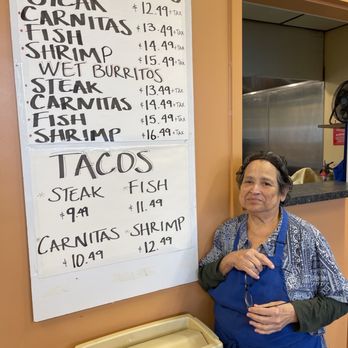 STEAK $12.49+TAX
CARNITAS $13.49+TAX
FISH $14.49+TAX
SHRIMP $15.49+TAX
WET BURRITOS
STEAK $13.49+TAX
CARNITAS $14.49+TAX
FISH $15.49+TAX
SHRIMP $16.49+TAX
TACOS
STEAK FISH
$9.49 $11.49
CARNITAS SHRIMP
$10.49 $12.49